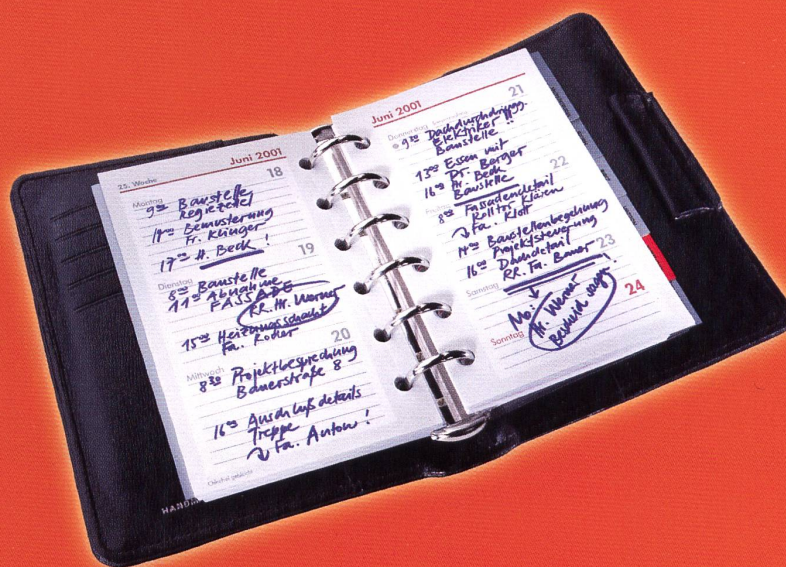 Juni 2001
25. Woche
18
Montag
9⁰⁰ Baustelle
Regiezettel
Bemusterung
Fr. Klinger
17⁰⁰ H. Beck!
19
Dienstag
8⁰⁰ Baustelle
11⁰⁰ Abnahme
FASSADE
RR. Hr. Werner
15⁰⁰ Heizungsschacht
Fa. Koder
20
Mittwoch
8³⁰ Projektbesprechung
Bauerstraße 8
16⁰⁰ Anschlußdetails
Treppe
Fa. Anton!
Juni 2001
21
Donnerstag
9³⁰ Dachdurchdringg.
Elektriker!!
Baustelle
13⁰⁰ Essen mit
Dr. Berger
16⁰⁰ Hr. Beck
Baustelle
22
8⁰⁰ Fassadendetail
Rolltor klären
Fa. Klott
14⁰⁰ Baustellenbegehung
Projektsteuerung
16⁰⁰ Dachdetail
RR. Fa. Bauer!
23
Samstag
Mo.
Hr. Werner
Bescheid sagen
24
Sonntag